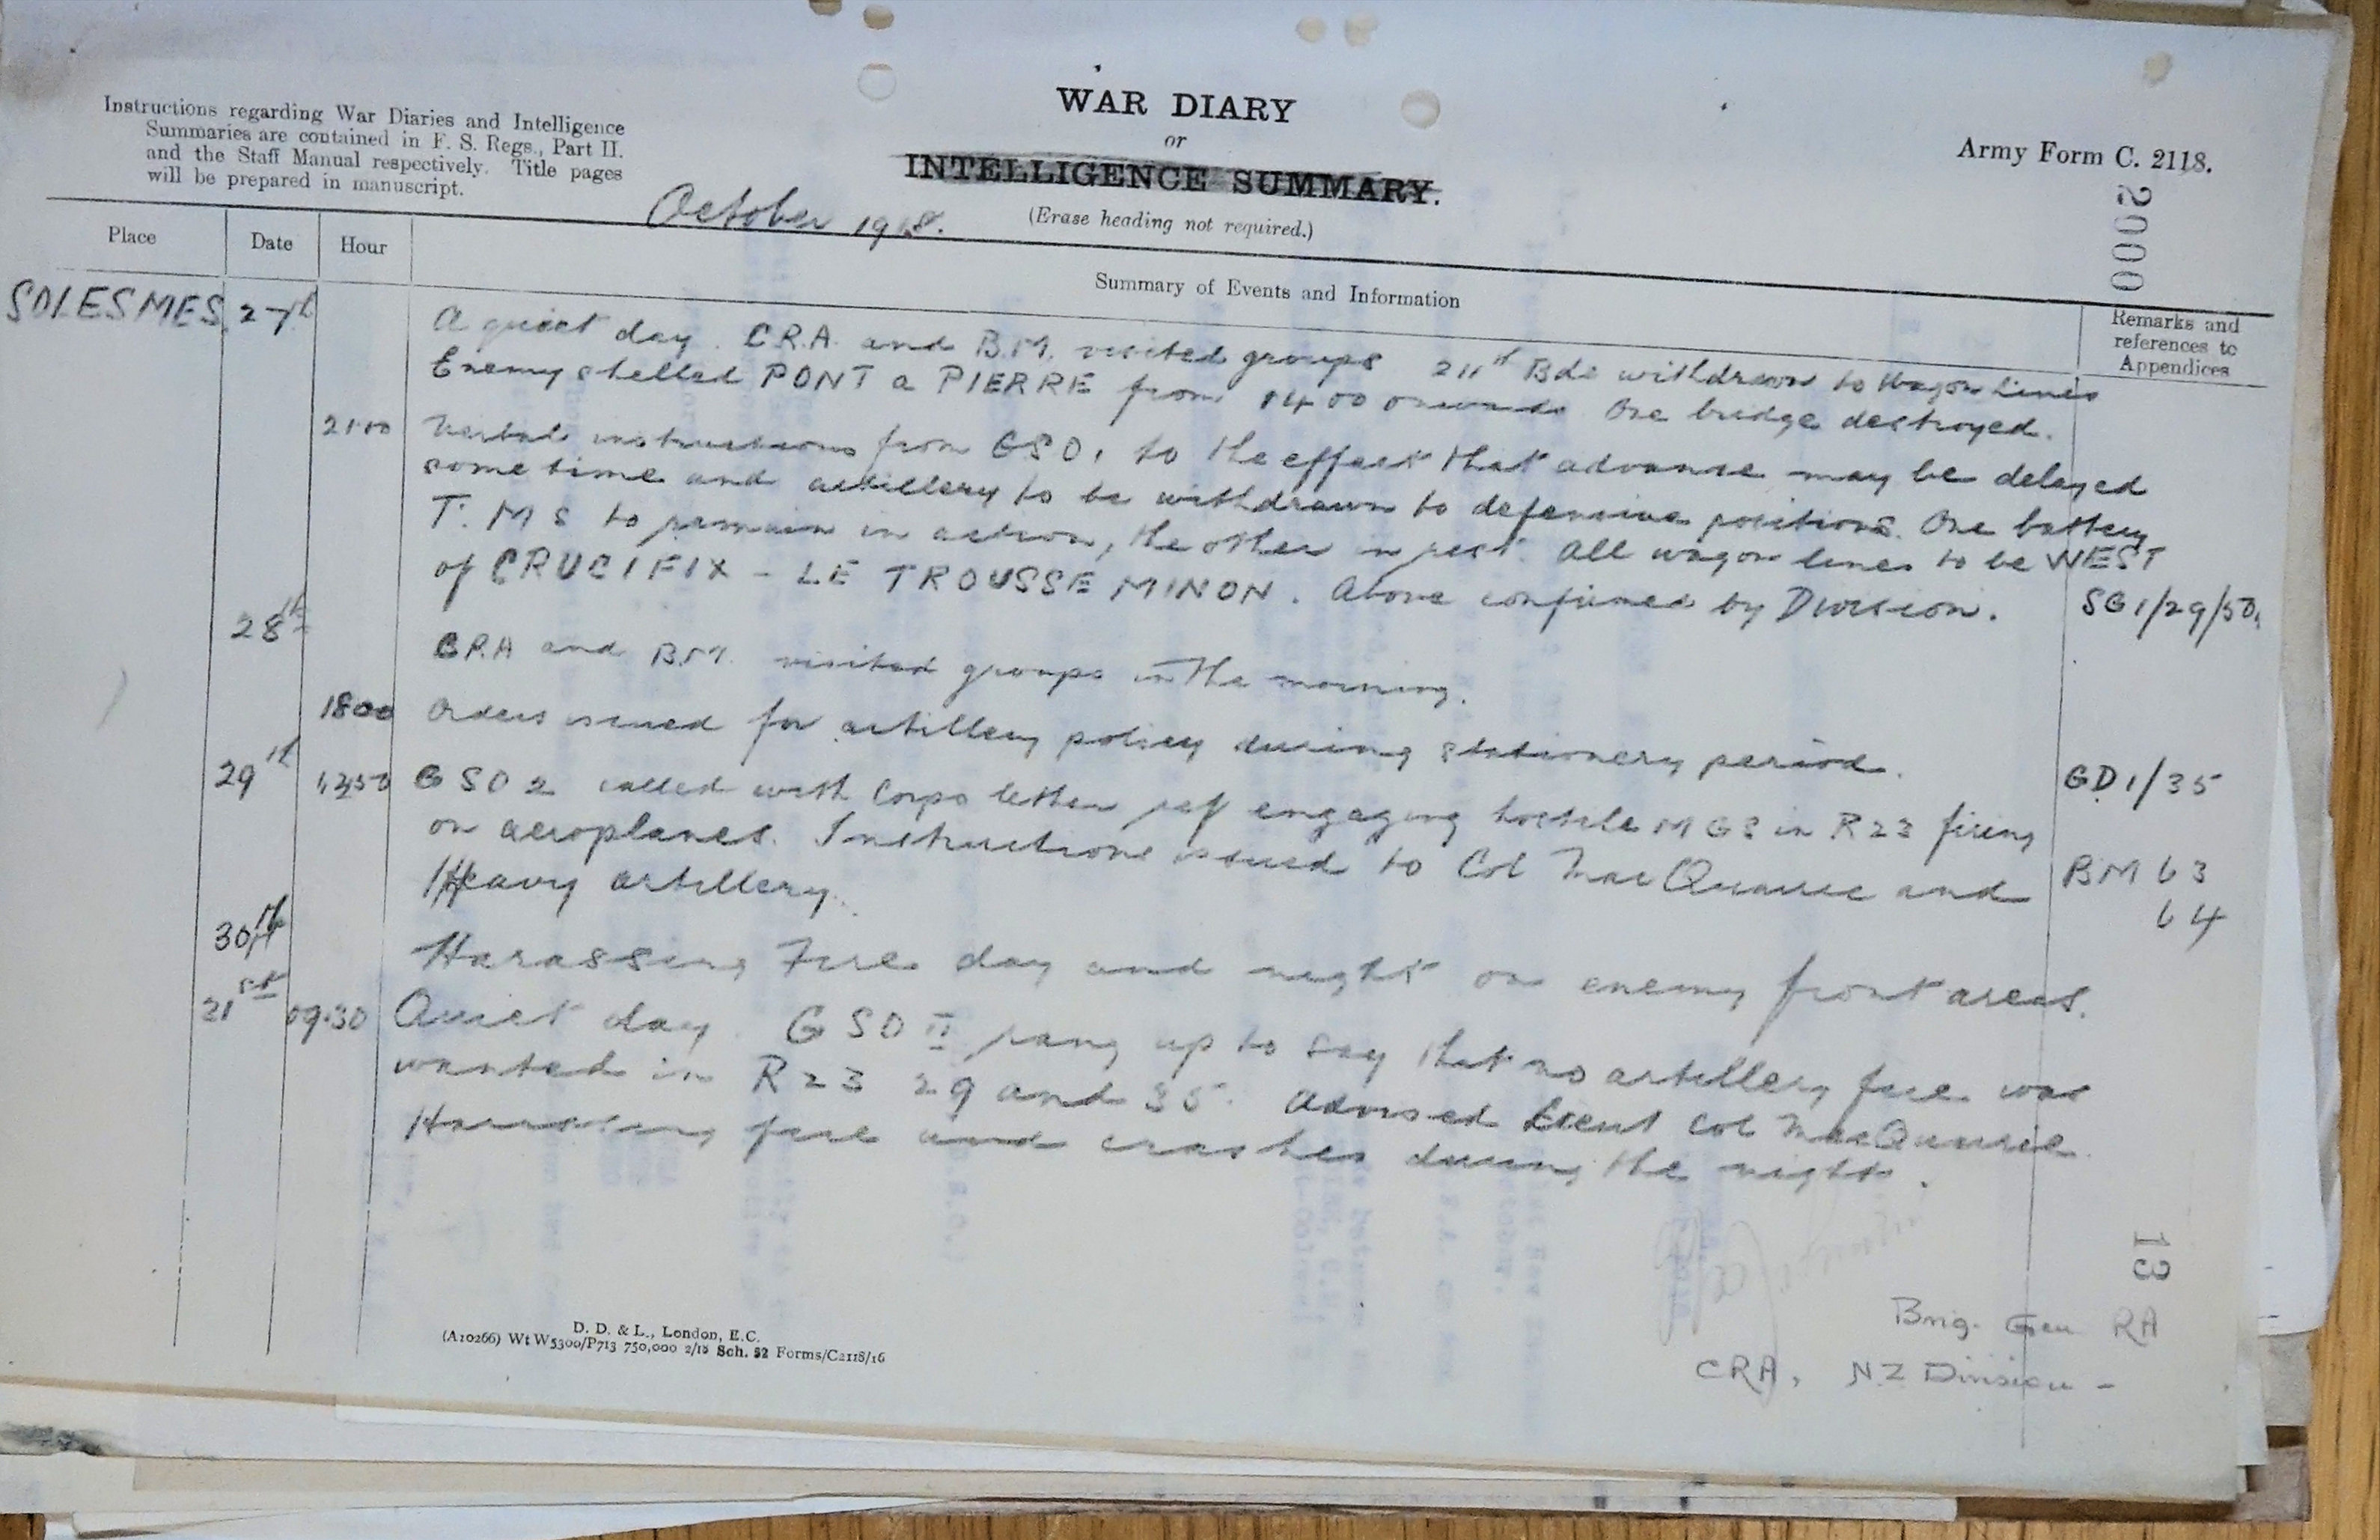 Instructions regarding War Diaries and Intelligence
Summaries are contained in F. S. Regs., Part II.
and the Staff Manual respectively. Title pages
will be prepared in manuscript.
WAR DIARY
or
INTELLIGENCE SUMMARY.
(Erase heading not required.)
October 1918.
Army Form C. 2118.
2000
Place Date Hour Summary of Events and Information Remarks and
references to
Appendices
SOLESMES 27th A quiet day. CRA. and B.M. visited groups 211th Bde withdrawn to Wagon Lines
Enemy shelled PONT a PIERRE from 1400 onwards One bridge destroyed.
2100 Verbal instructions from GSO1 to the effect that advance may be delayed
some time and artillery to be withdrawn to defensive positions. One battery
T.M S to remain in action, the other in rest. All wagon lines to be WEST
of CRUCIFIX - LE TROUSSE MINON. Above confirmed by Division. SG1/29/50.
28th CRA and B.M. visited groups in the morning.
1800 Orders issued for artillery policy during stationery period. GD1/35
29th 1250 GSO 2 called with Corps letter ref engaging hostile MGS in R23 firing
on aeroplanes. Instructions issued to Col MacQuarrie and BM 63
Heavy artillery. 64
30th Harassing Fire day and night on enemy front areas.
31st 09.30 Quiet day. GSO II rang up to say that no artillery fire was
wanted in R23 29 and 35. Advised Lieut Col MacQuarrie.
Harassing fire and crashes during the night.
13
Brig. Gen RA
CRA, NZ Division -
D. D. & L., London, E.C.
(A10266) Wt W5300/P713 750,000 2/18 Sch. 52 Forms/C2118/16